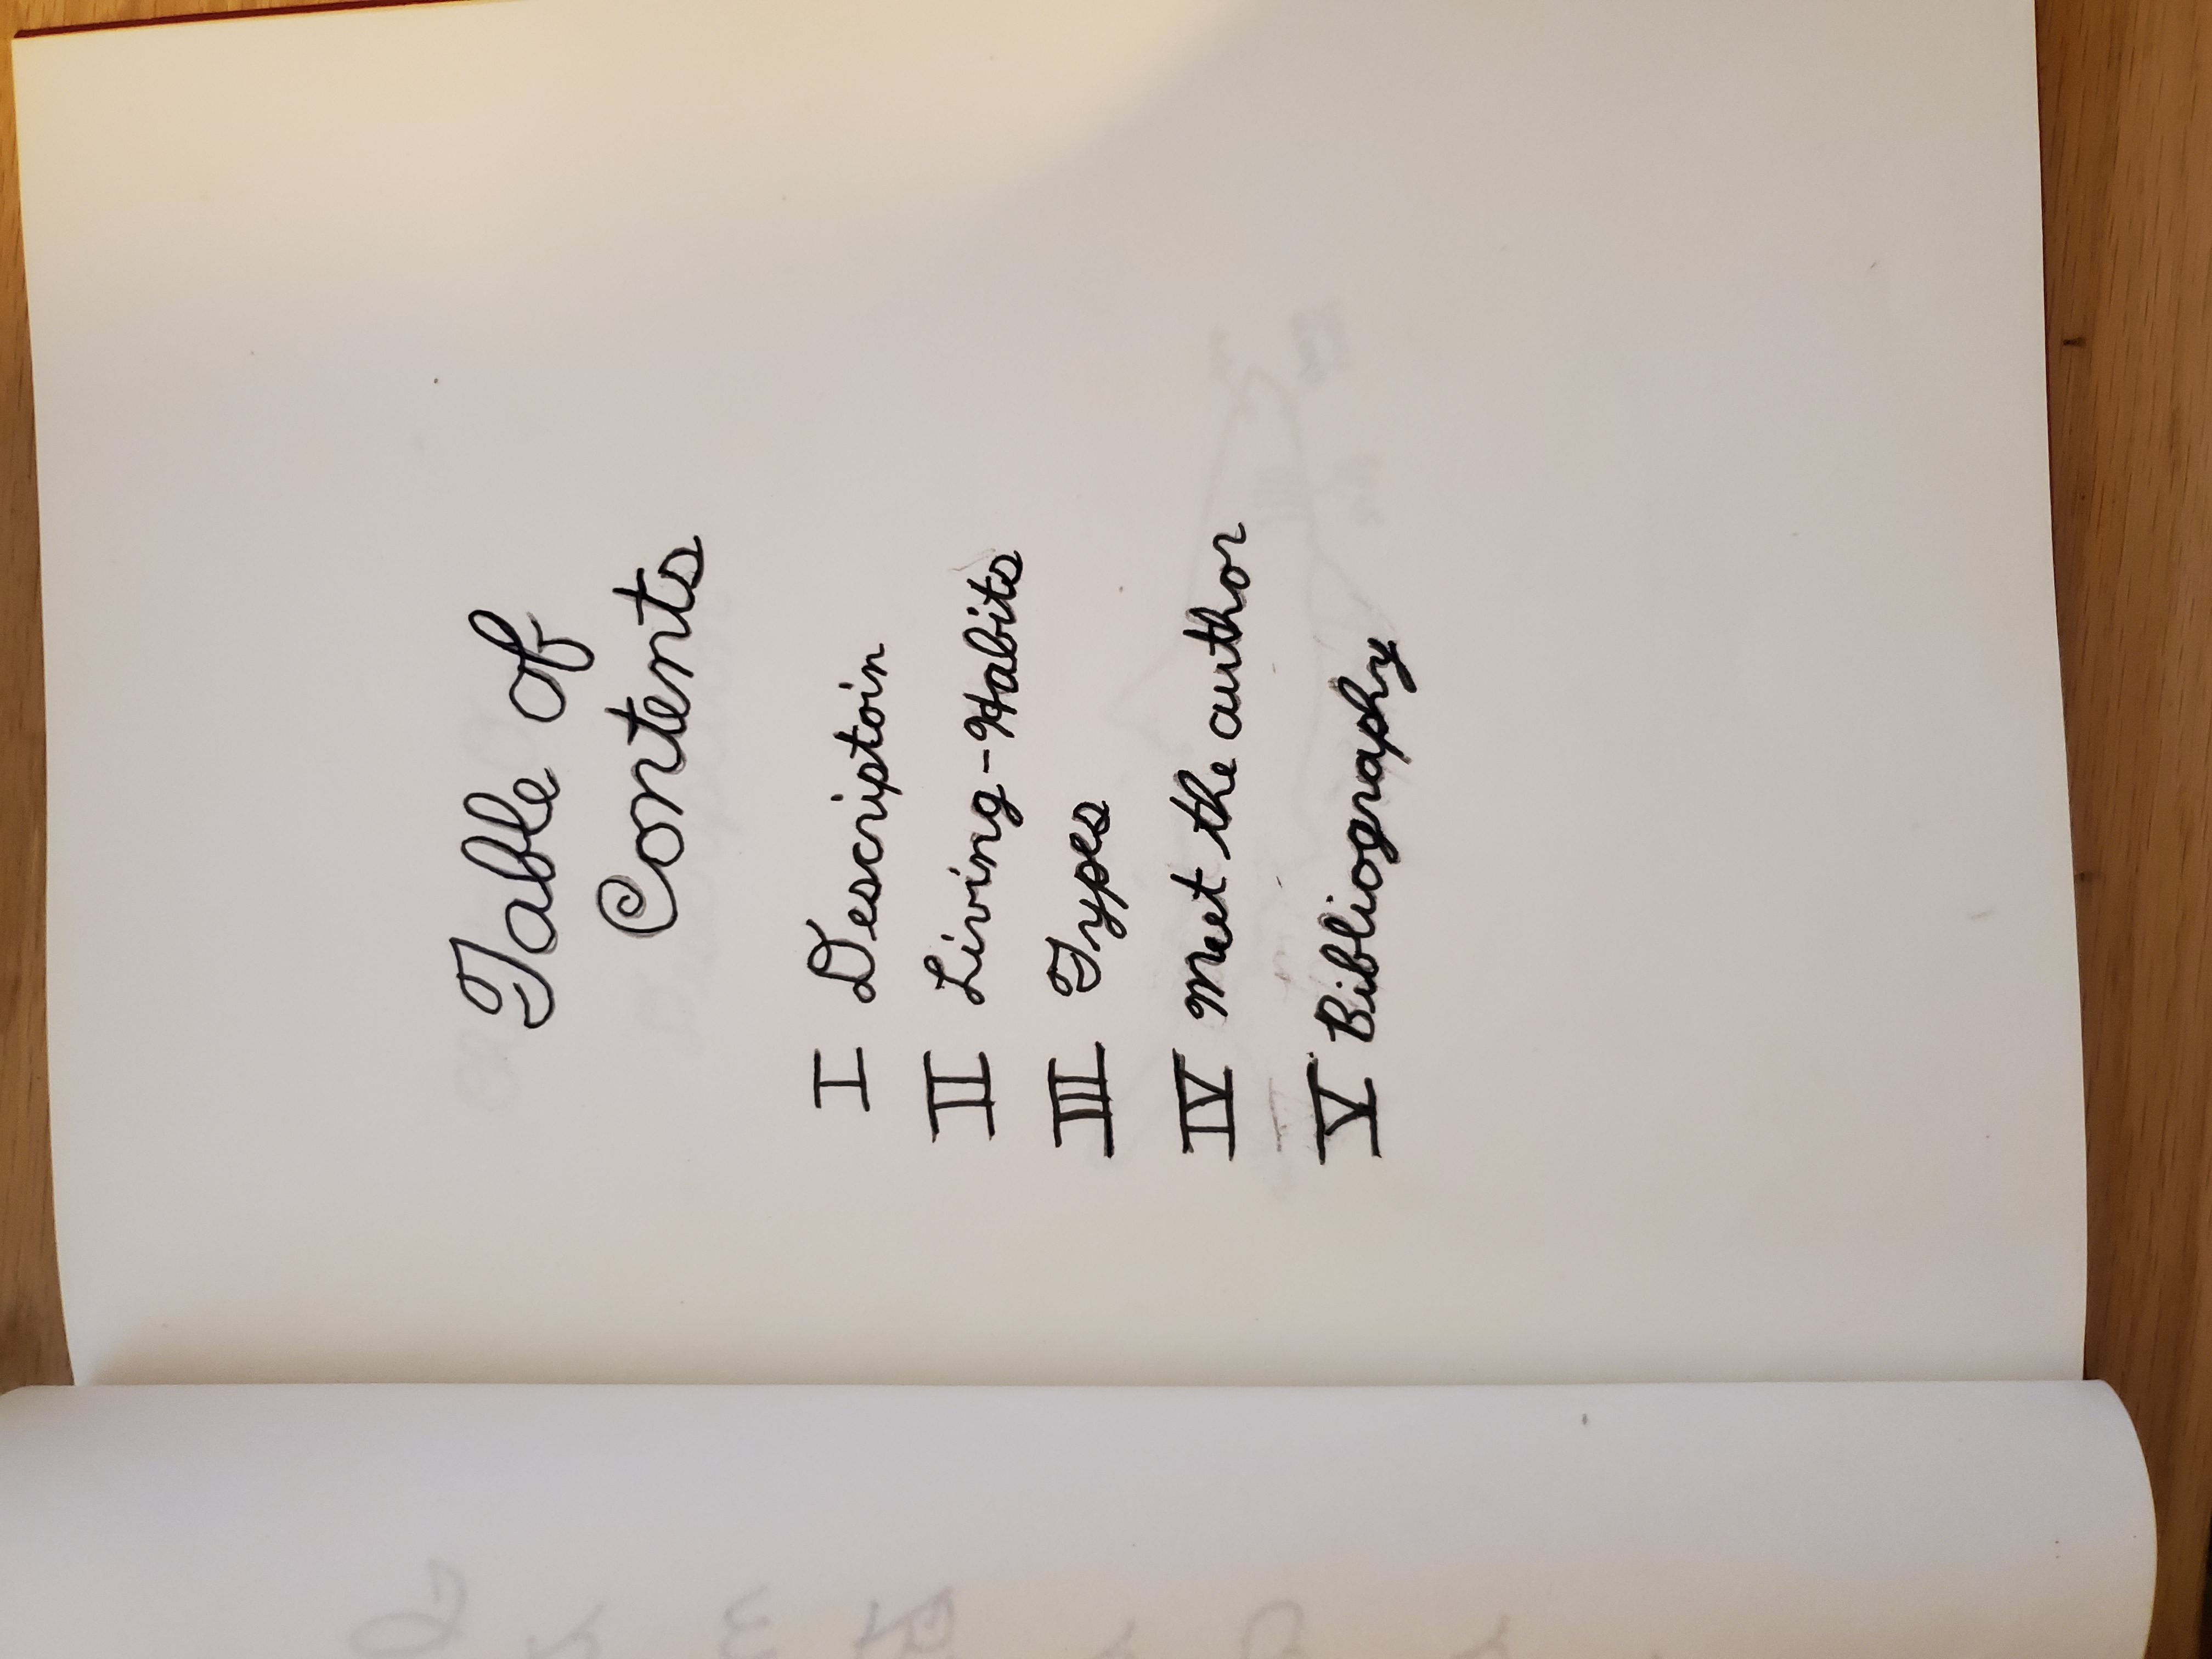 Table of
Contents
I Descriptoin
II Living-Habits
III Types
IV Meet the author
V Bibliography